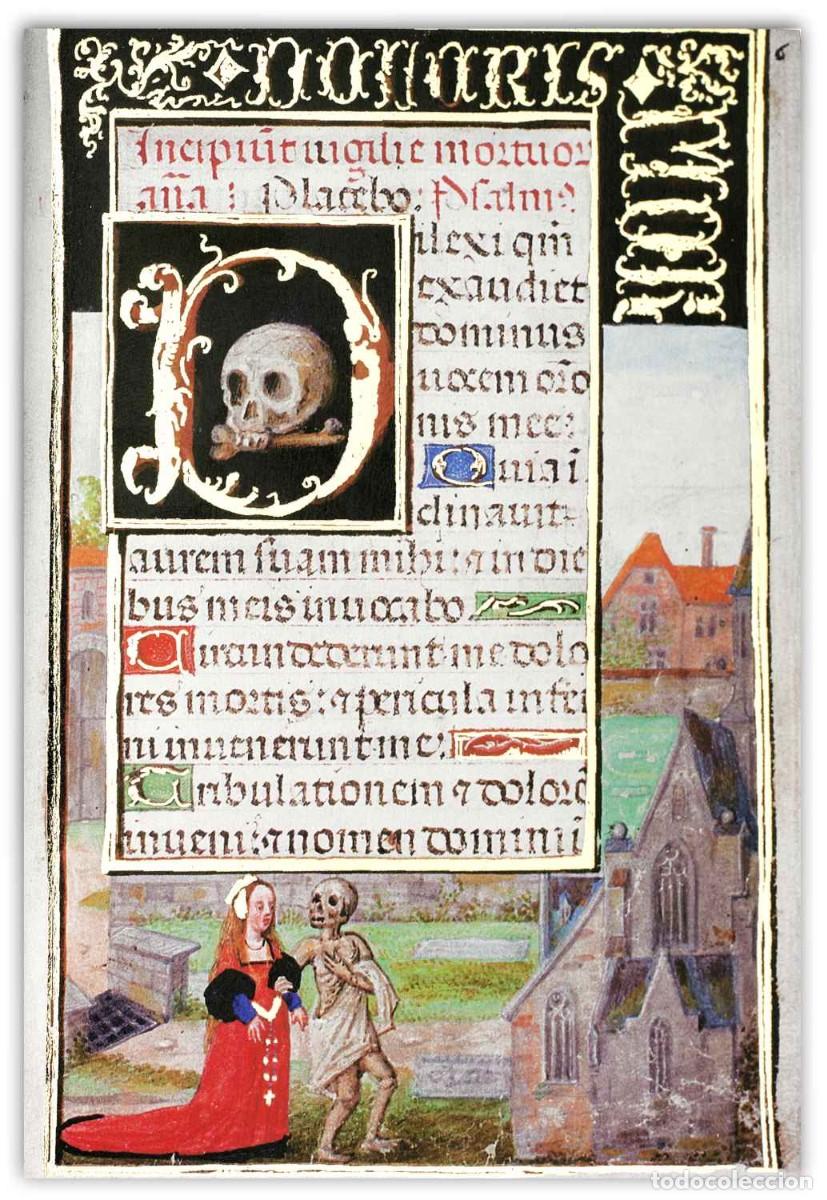 6
Incipiūt uigilie mortuor
aña: Placebo: Psalmꝰ
Dilexi qm̄
exaudiet
dominus
uocem orō
nis mee:
Quia ī
clinauit
aurem suam mihi: ⁊ in die
bus meis inuocabo
Circundederunt me dolo
res mortis: ⁊ pericula infer
ni inuenerunt me:
Tribulationem ⁊ dolorē
inueni: ⁊ nomen domini
todocoleccion